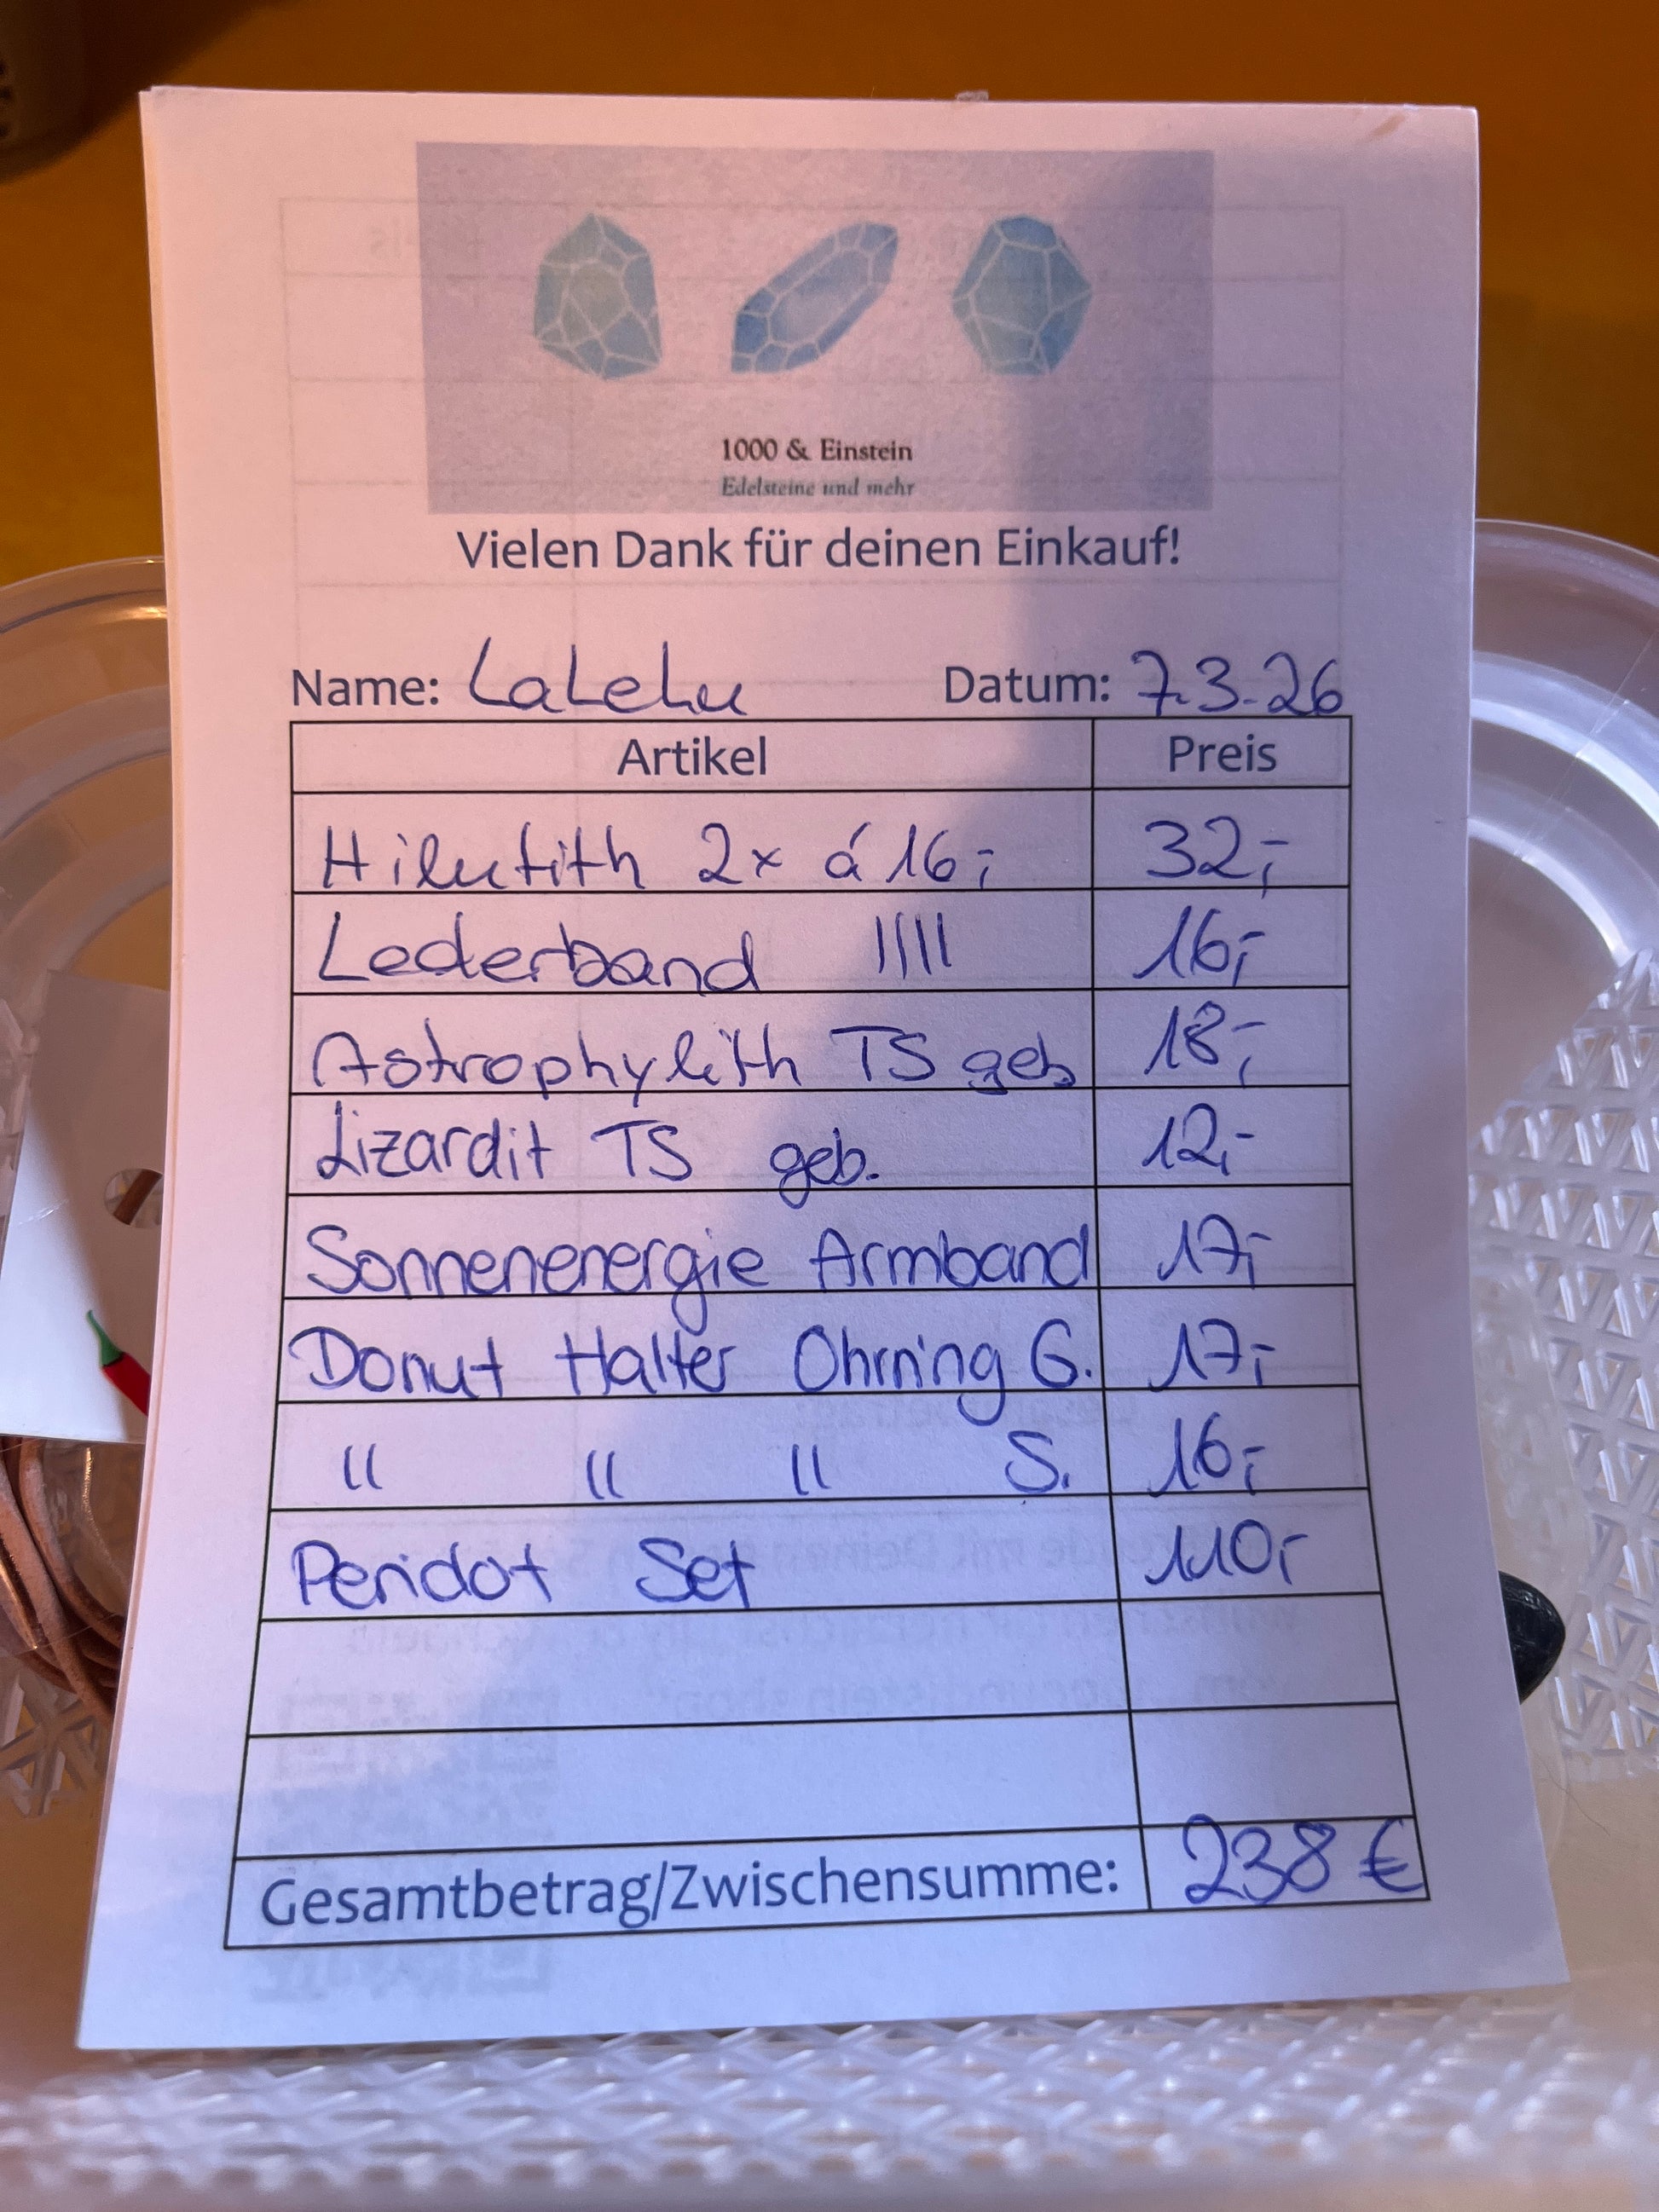 1000 & Einstein
Edelsteine und mehr
Vielen Dank für deinen Einkauf!
Name: LaLeLu Datum: 7.3.26
Artikel Preis
Hilutith 2x á 16,- 32,-
Lederband |||| 16,-
Astrophylith TS geb. 18,-
Lizardit TS geb. 12,-
Sonnenenergie Armband 17,-
Donut Halter Ohrring G. 17,-
" " " S. 16,-
Peridot Set 110,-
Gesamtbetrag/Zwischensumme: 238 €